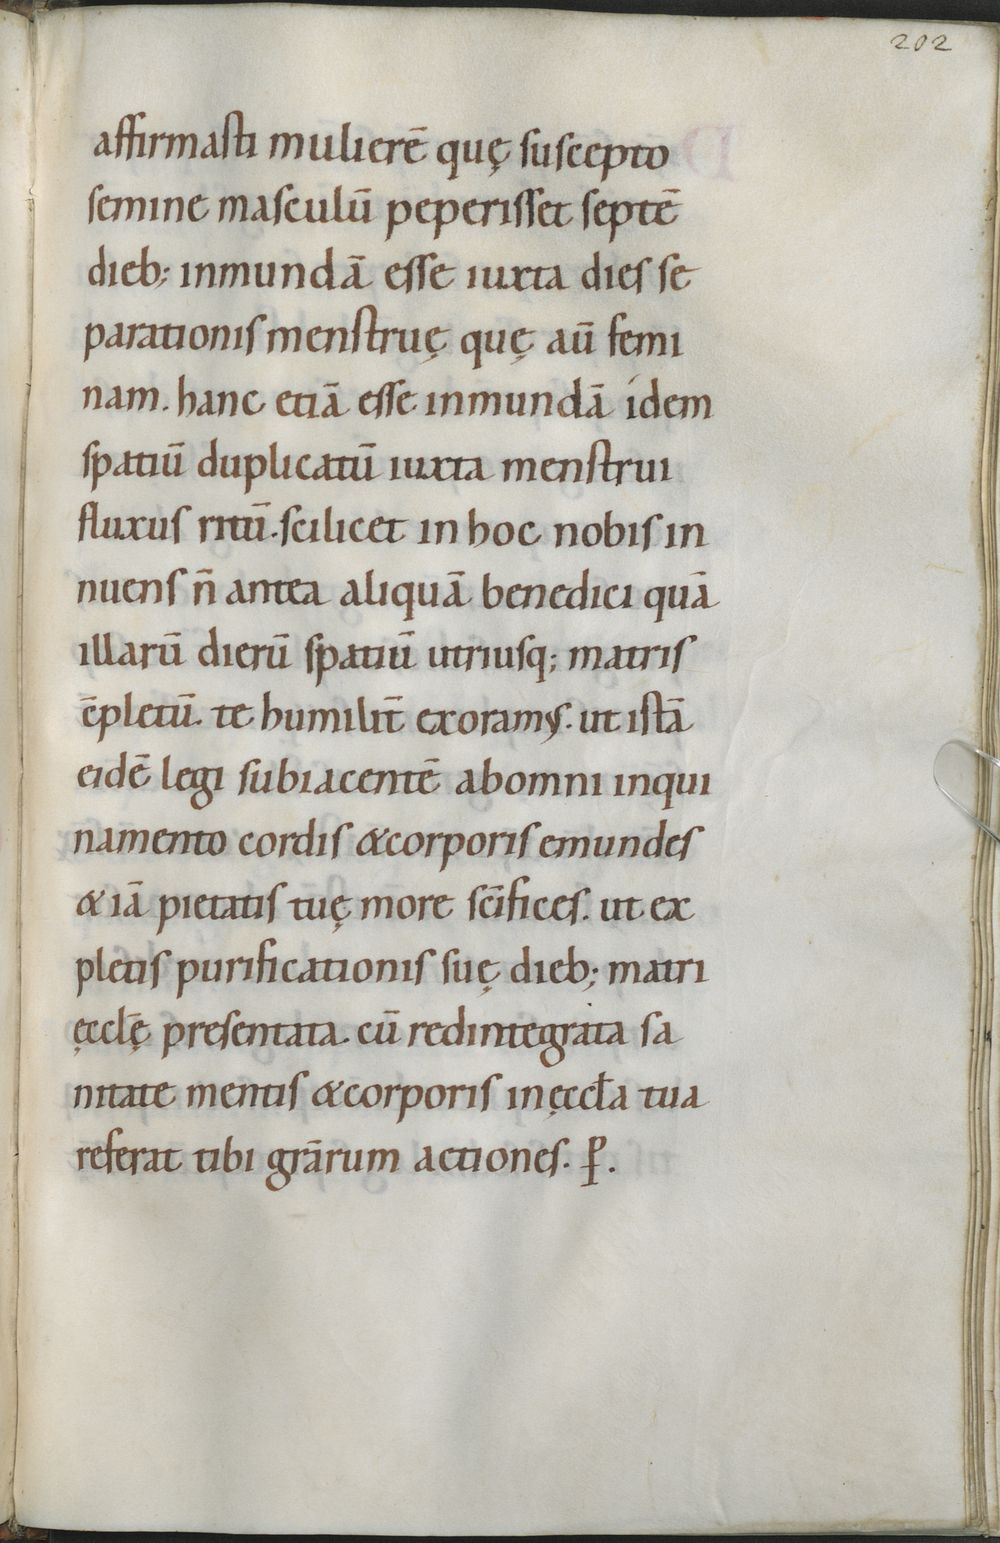 202
affirmasti mulierē quę suscepto
semine masculū peperisset septē
dieb; inmundā esse iuxta dies se
parationis menstruę quę aū femi
nam. hanc etiā esse inmundā idem
spatiū duplicatū iuxta menstrui
fluxus ritū. scilicet in hoc nobis in
nuens n̄ antea aliquā benedici quā
illarū dierū spatiū utriusq; matris
ēpletū. te humilit̄ exoramꝰ. ut istā
eidē legi subiacentē abomni inqui
namento cordis &corporis emundes
& iā pietatis tuę more sc̄ifices. ut ex
pletis purificationis suę dieb; matri
ęccl̄ę presentata. cū redintegrata sa
nitate mentis &corporis in ęccl̄a tua
referat tibi grārum actiones. ꝑ.